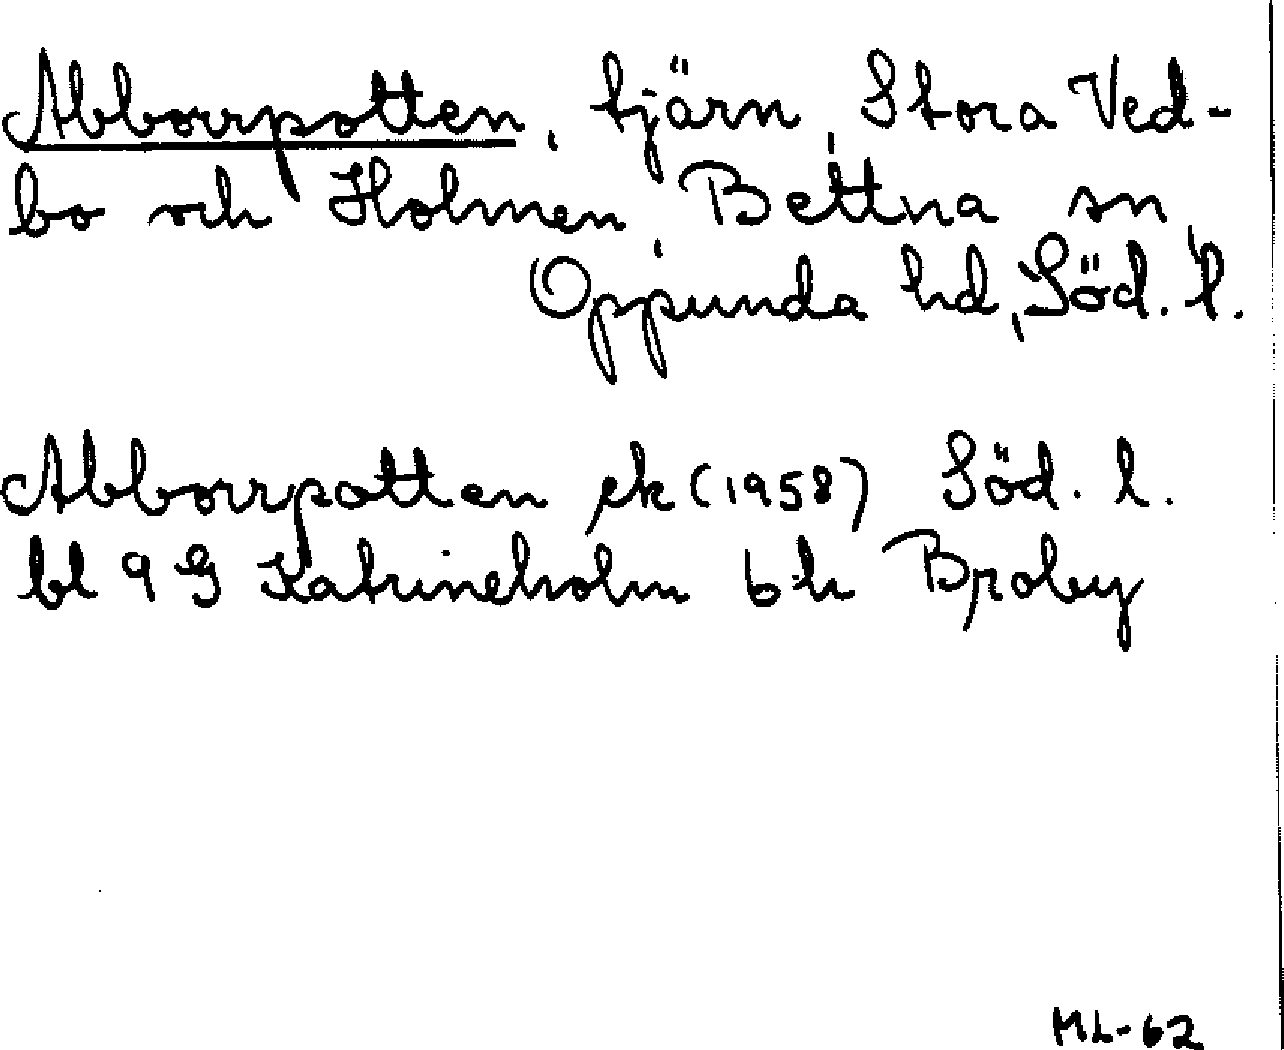 Abborrpotten, tjärn, Stora Ved-
bo och Holmen, Bettna sn,
Oppunda hd, Söd. l.
Abborrpotten ek (1958) Söd. l.
bl 9 G Katrineholm b-h Broby
ML-62